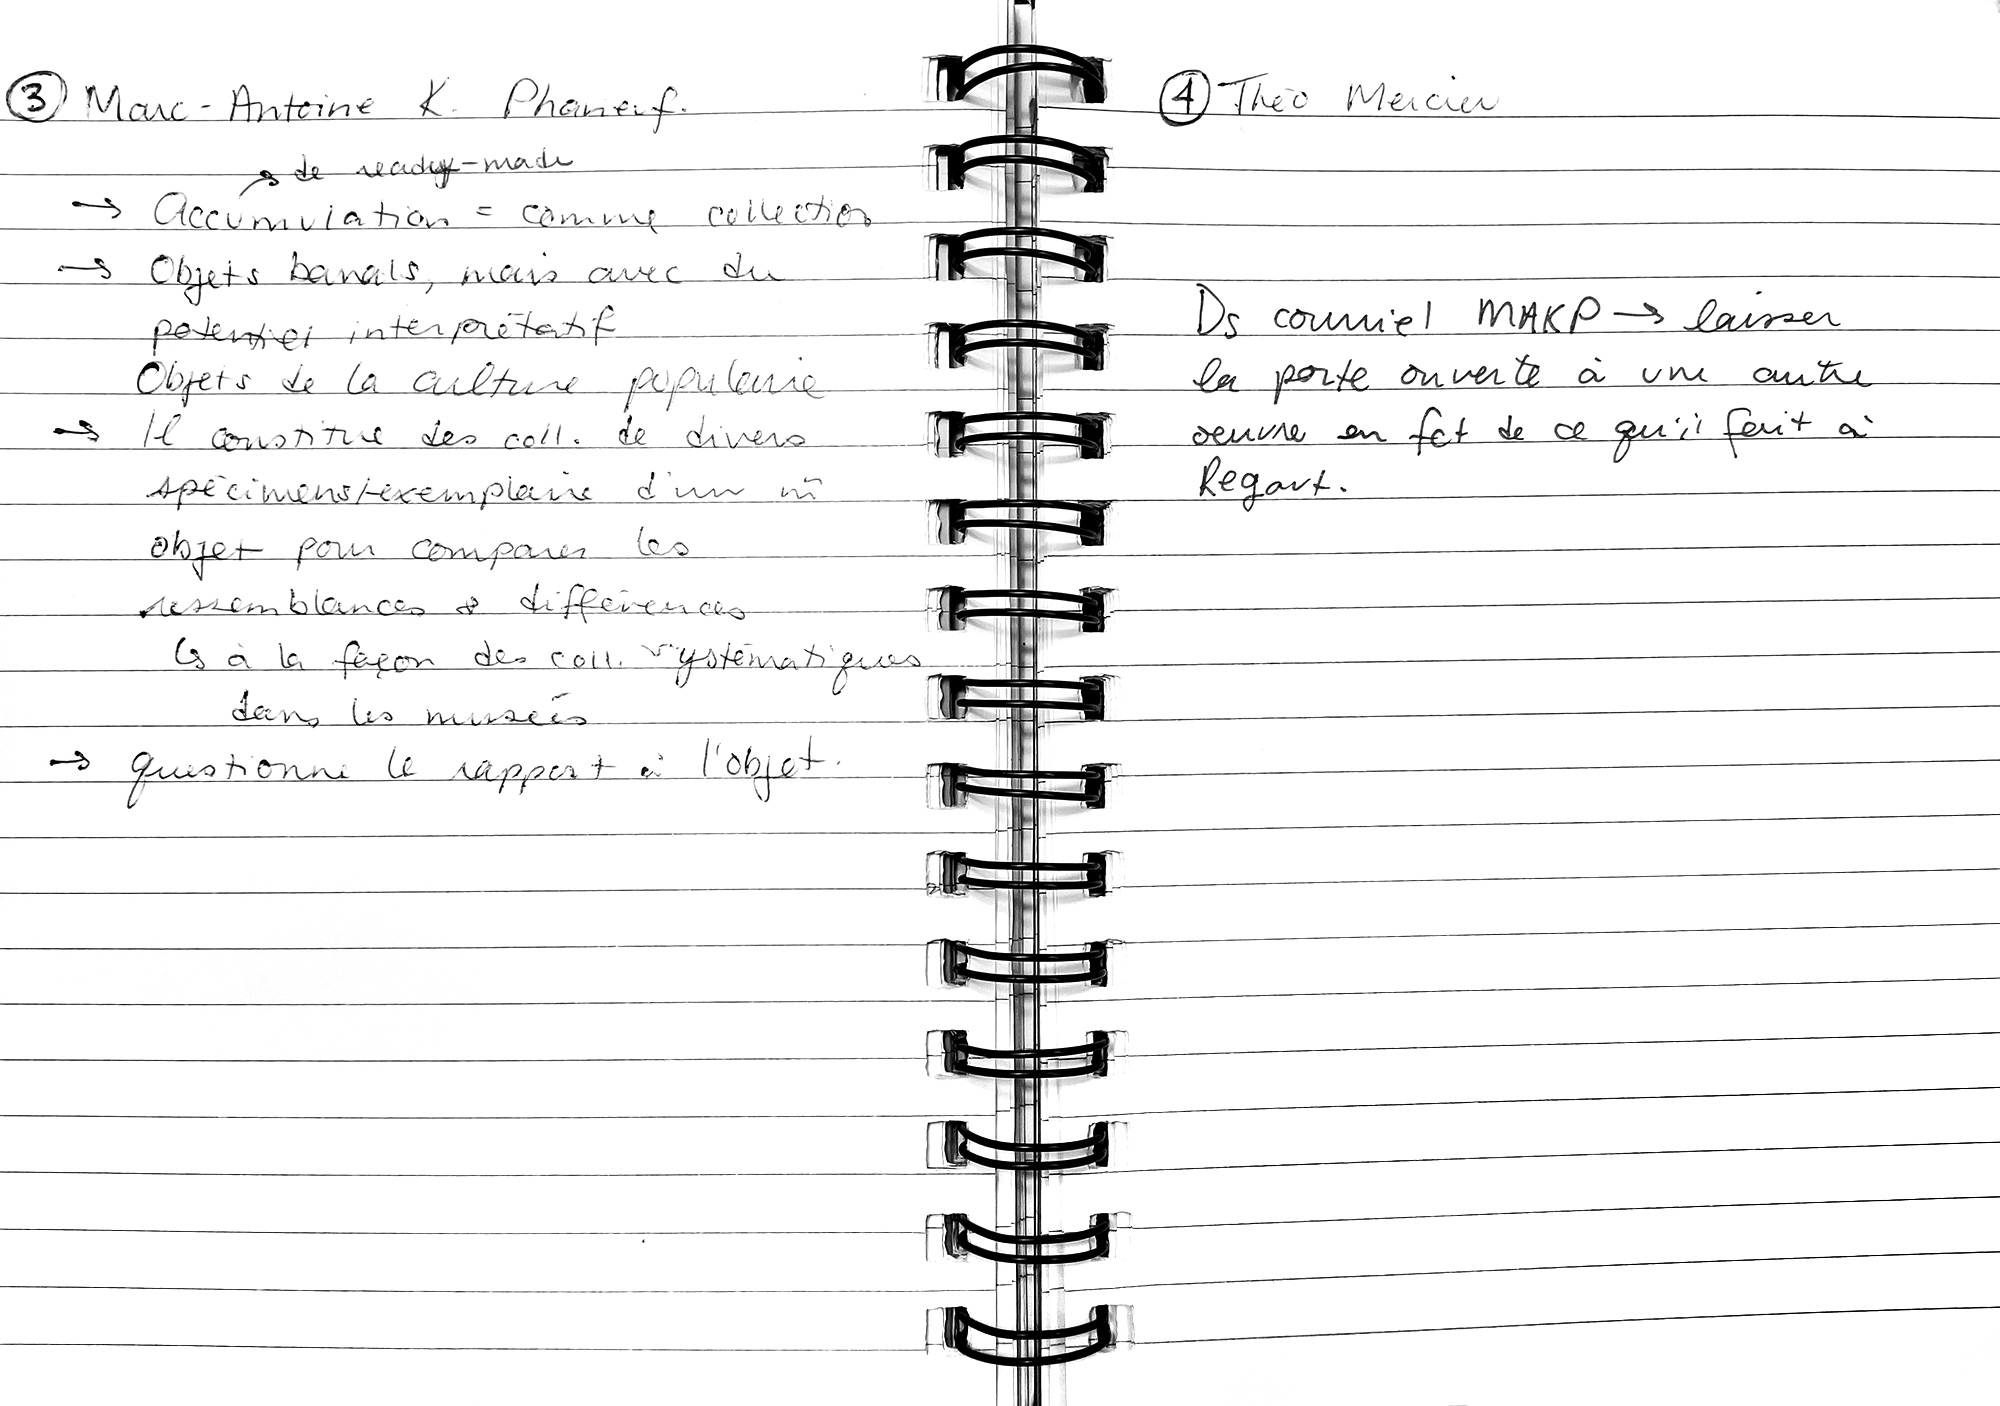 ③ Marc-Antoine K. Phaneuf.
↗ de ready-made
→ Accumulation = comme collection
→ Objets banals, mais avec du
potentiel interprétatif
Objets de la culture populaire
→ Il constitue des coll. de divers
spécimens/exemplaire d'un m̂
objet pour comparer les
ressemblances & différences
↳ à la façon des coll. systématiques
dans les musées
→ questionne le rapport à l'objet.
④ Théo Mercier
Ds courriel MAKP → laisser
la porte ouverte à une autre
oeuvre en fct de ce qu'il fait à
Regart.